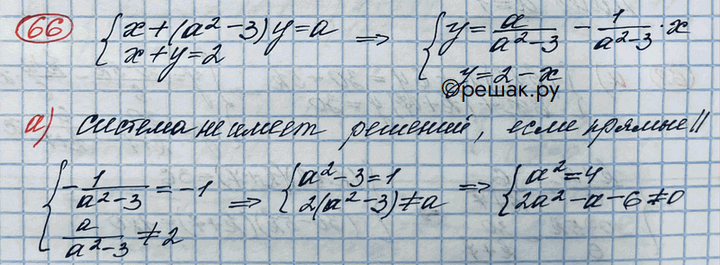 66 { x+(a²-3)y=a => { y= a/(a²-3) - 1/(a²-3)·x
x+y=2 y=2-x
©решак.ру
а) система не имеет решений, если прямые ||
{ -1/(a²-3) = -1 => { a²-3=1 => { a²=4
a/(a²-3) ≠ 2 2(a²-3)≠a 2a²-a-6≠0